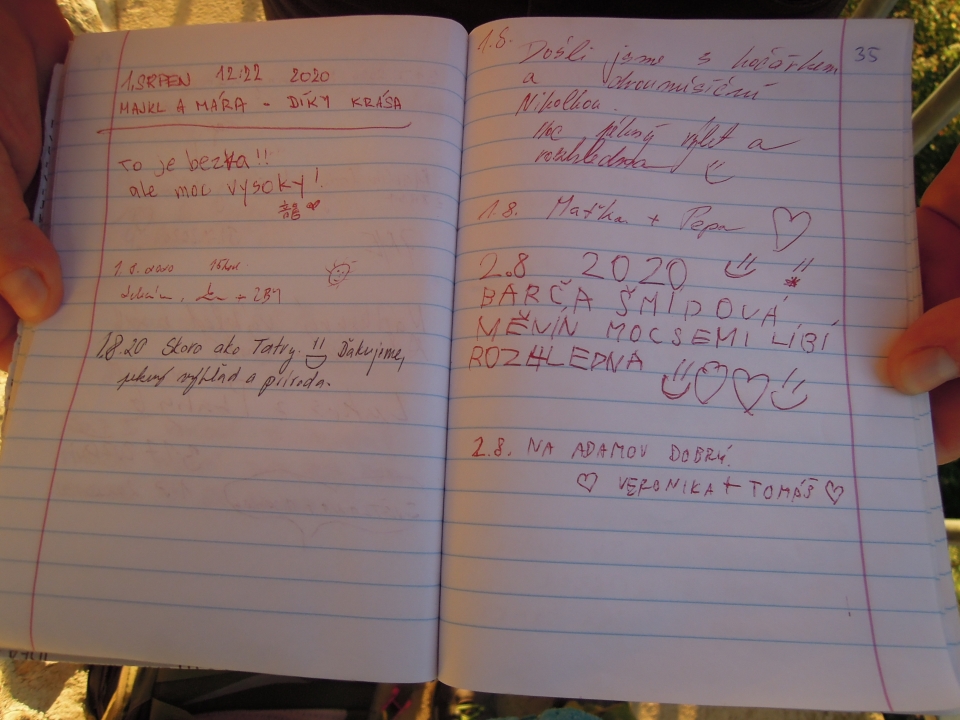 1. SRPEN 12:22 2020
MAJKL A MÁRA - DÍKY KRÁSA
to je bezva!!
ale moc vysoky!
1.8. 2020
+ ZBY
1.8.20 Skoro ako Tatry. Ďakujeme,
pekný výhľad a príroda.
35
1.8. Došli jsme s kočárkem
a dvouměsíční
Nikolkou.
Moc pěkný výlet a
rozhledna
1.8. Maťka + Pepa
2.8 2020
BARČA ŠMÍDOVÁ
MĚNÍN MOCSEMI LÍBÍ
ROZHLEDNA
2.8. NA ADAMOV DOBRÝ.
VERONIKA + TOMÁŠ